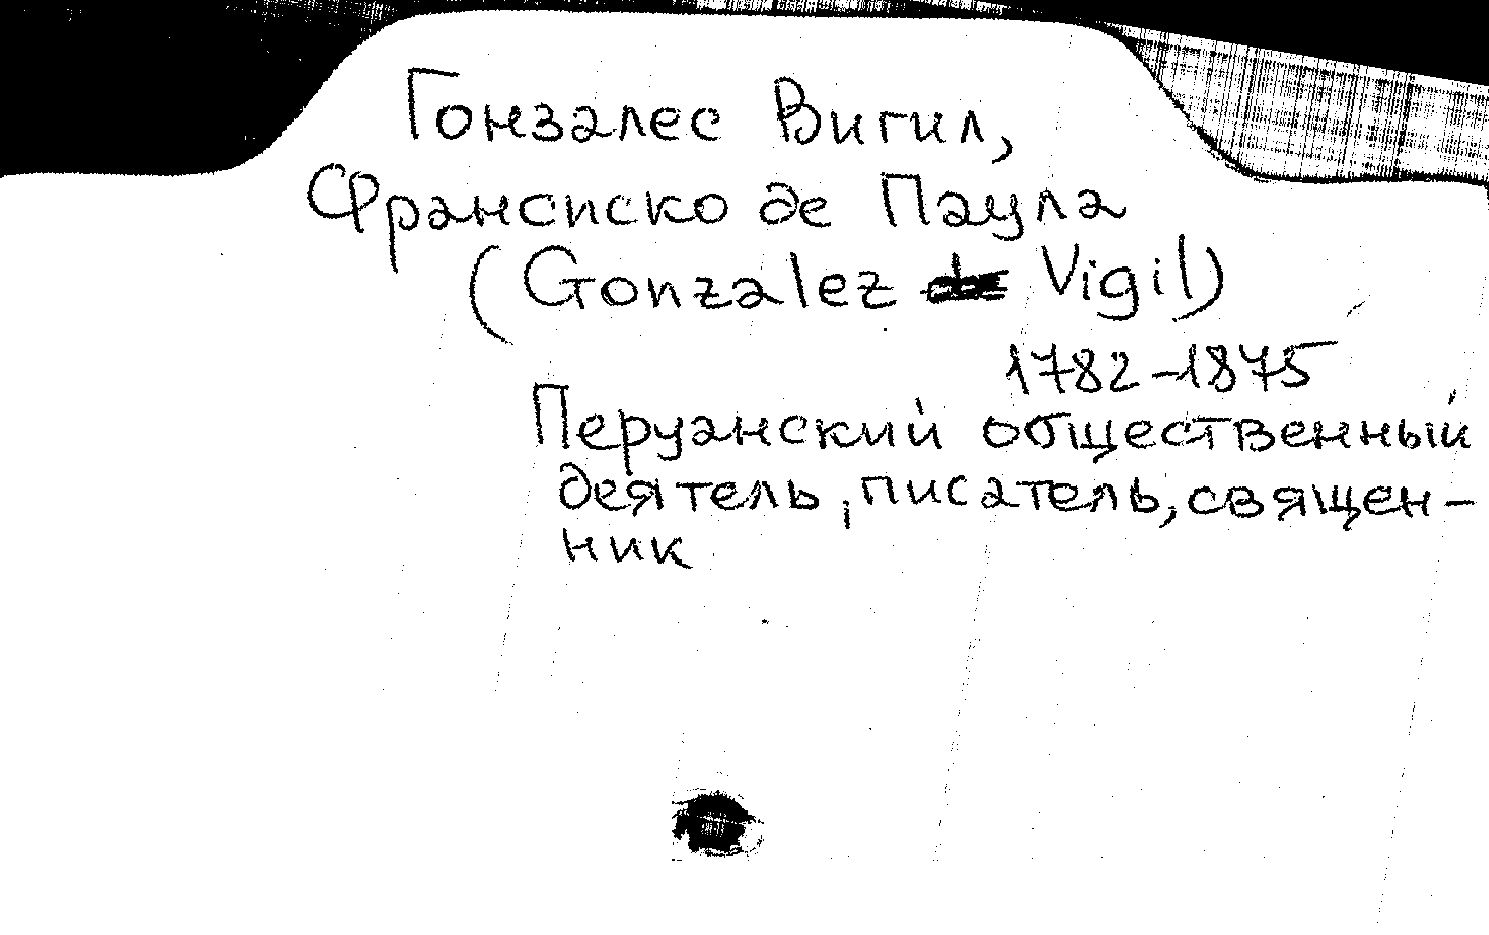 Гонзалес Вигил,
Франсиско де Паула
(Gonzalez Vigil)
1782-1875
Перуанский общественный
деятель, писатель, священ-
ник